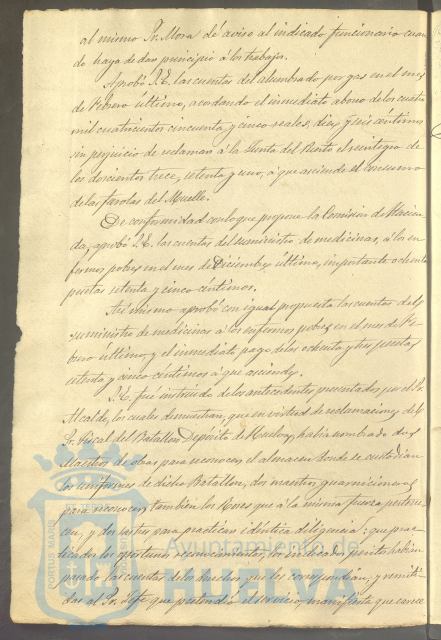 al mismo Sr. Mora dé aviso al indicado funcionario cuan-
do haya de dar principio á los trabajos.
Aprobó S.E. las cuentas del alumbrado por gas en el mes
de Febrero último, acordando el inmediato abono de los cuatro
mil cuatrocientos cincuenta y cinco reales, diez y seis centimos
sin perjuicio de reclamar á la Junta del Puerto el reintegro de
los doscientos trece, setenta y uno, á que asciende el consumo
de las farolas del Muelle.
De conformidad con lo que propone la Comision de Hacien-
da, aprobó S.E. las cuentas del suministro de medicinas, á los en-
fermos pobres en el mes de Diciembre último, importante ochenta
pesetas setenta y cinco centimos.
Asi mismo aprobó con igual propuesta las cuentas del
suministro de medicina á los enfermos pobres en el mes de Fe-
brero último, y el inmediato pago de las ochenta y tres pesetas
setenta y cinco centimos á que asciende.
S.E. fué instruido de los antecedentes presentados por el Sr.
Alcalde, los cuales demuestran, que en virtud de reclamacion del
Sr. Fiscal del Batallon Depósito de Huelva, habia nombrado dos
Maestros de obras para reconocer el almacen donde se custodian
los uniformes de dicho Batallon, dos maestros guarnicioneros
para reconocer tambien los que á la misma fuerza pertene-
cen, y dos sastres para practicar identica diligencia: que prac-
ticados los oportunos reconocimientos, los indicados peritos habian
pasado las cuentas de los derechos que les correspondian, y remiti-
das al Sr. Jefe que pretendió el servicio, manifiesta que carece
PORTUS MARIS
Ayuntamiento de
HUELVA